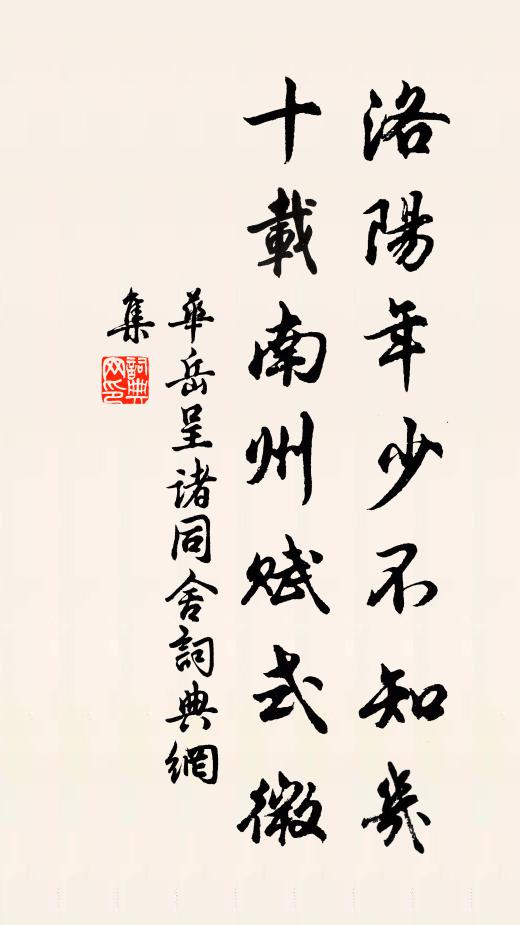 洛陽年少不知幾
十載南州賦式微
華岳呈诸同舍詞典網
集
詞典
网印